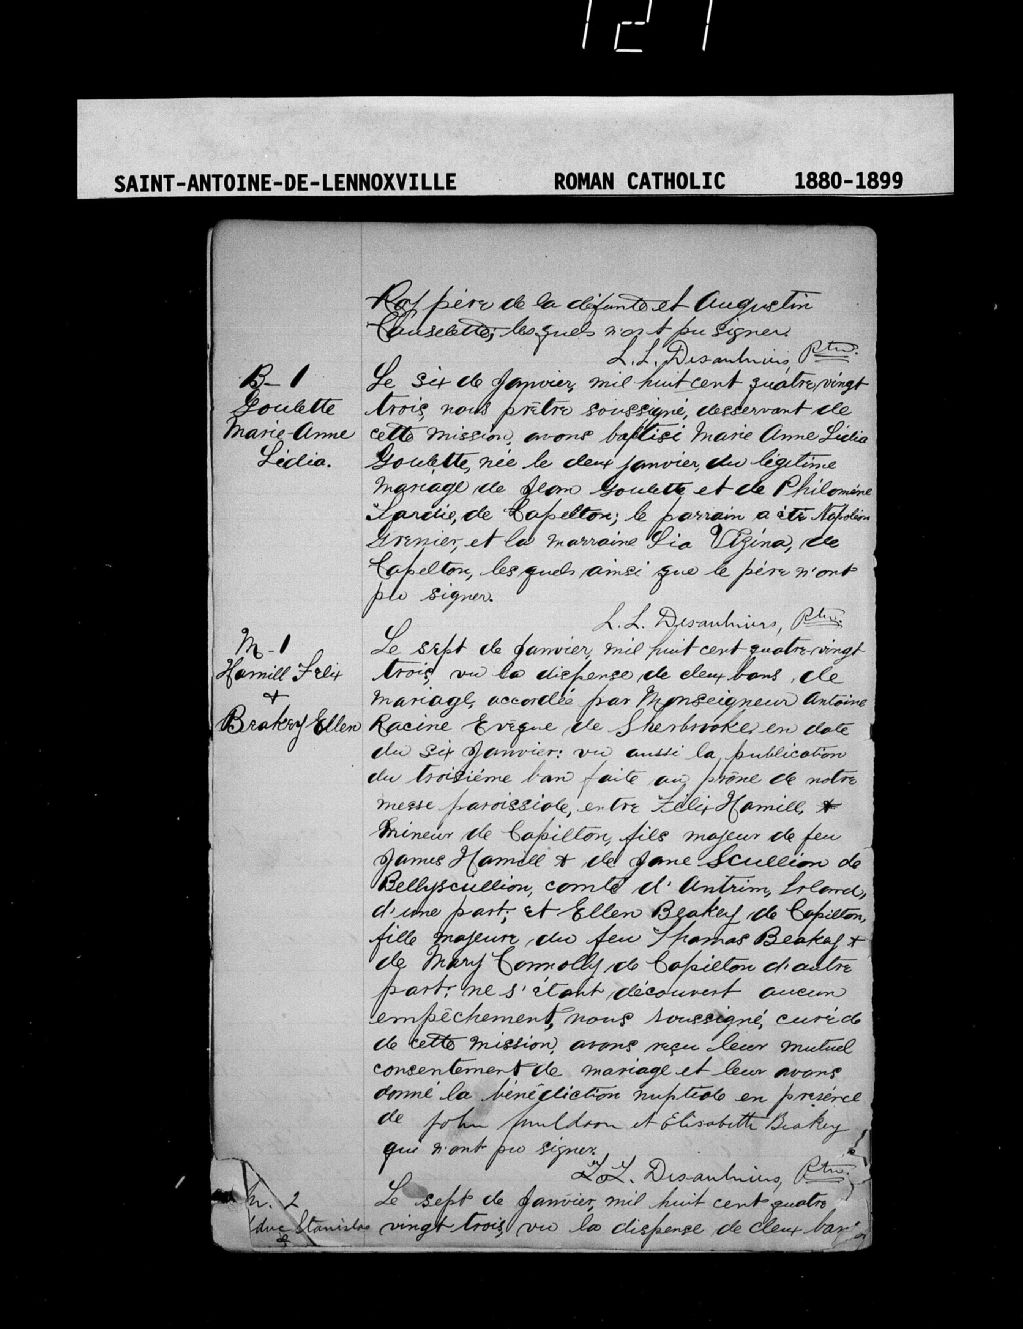 127
SAINT-ANTOINE-DE-LENNOXVILLE ROMAN CATHOLIC 1880-1899
Roy père de la défunte et Augustin
lesquels n'ont pu signer.
L. L. Desaulniers, Ptre.
B-1
Goulette
Marie-Anne
Lédia.
Le six de Janvier, mil huit cent quatre vingt
trois, nous prêtre soussigné, desservant de
cette mission, avons baptisé Marie Anne Lédia
Goulette, née le deux janvier, du légitime
mariage de Jean Goulette et de Philomène
de Capelton; le parrain a été Napoléon
Grenier, et la marraine Lia Vézina, de
Capelton, lesquels ainsi que le père n'ont
pu signer.
L. L. Desaulniers, Ptre.
M-1
Hamill Felix
+
Beakey Ellen
Le sept de Janvier, mil huit cent quatre-vingt
trois, vu la dispense de deux bans, de
mariage, accordée par Monseigneur Antoine
Racine Evêque de Sherbrooke, en date
du six Janvier: vu aussi la publication
du troisième ban faite au prône de notre
messe paroissiale, entre Félix Hamill, +
mineur de Capilton, fils majeur de feu
James Hamill + de Jane Scullion de
Bellyscullion, comté d'Antrim, Irland,
d'une part; et Ellen Beakey de Capilton,
fille majeure du feu Thomas Beakey +
de Mary Connolly de Capilton d'autre
part; ne s'étant découvert aucun
empêchement, nous soussigné, curé de
de cette mission, avons reçu leur mutuel
consentement de mariage et leur avons
donné la bénédiction nuptiale en présence
de John Muldoon et Elisabeth Beakey
qui n'ont pu signer.
L. L. Desaulniers, Ptre.
M. 2
Stanislas
&
Le sept de Janvier, mil huit cent quatre
vingt trois, vu la dispense de deux bans